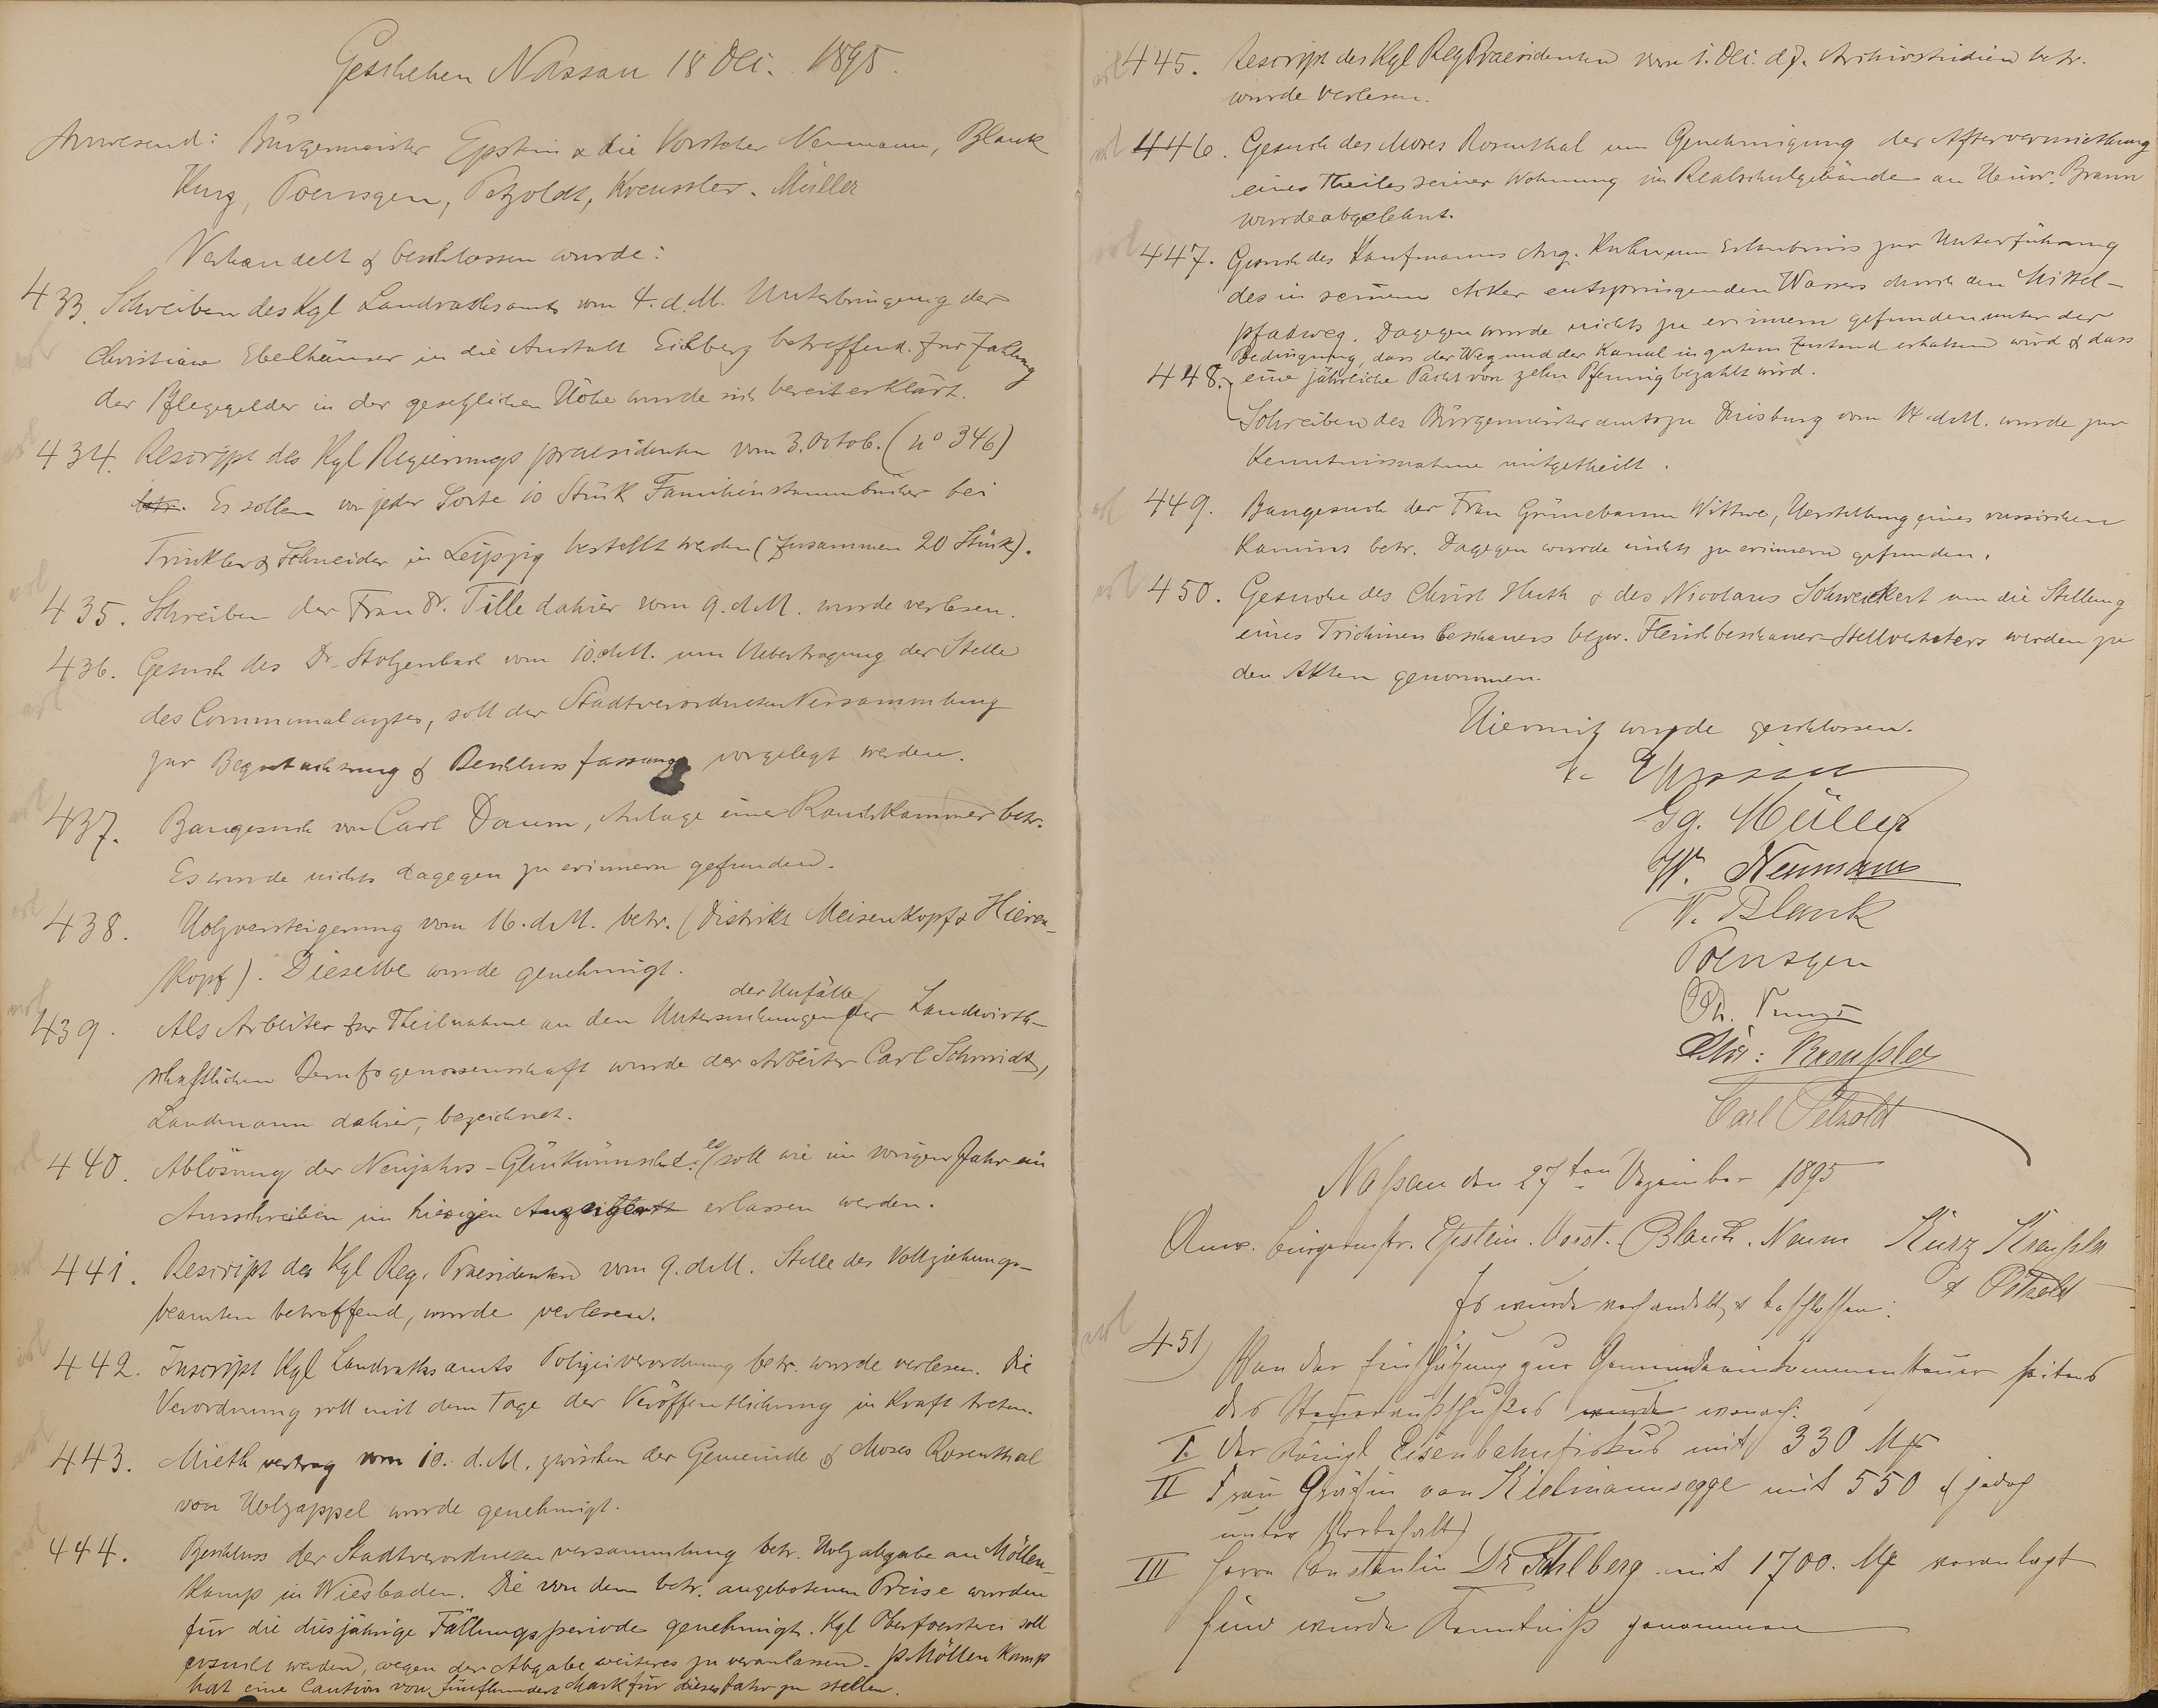 Geschehen Nassau 18 Dec. 1895.
Anwesend: Bürgermeister Epstein & die Vorsteher Neumann, Blank
Kurz, Poensgen, Petzoldt, Kreussler. Müller
Verhandelt & beschlossen wurde:
433. Schreiben des Kgl Landrathsamts vom 4. d. M. Unterbringung der
Christiane Ebelhäuser in die Anstalt Eichberg betreffend. Zur Zahlung
der Pflegegelder in der gesetzlichen Höhe wurde sich bereit erklärt.
434. Rescript des Kgl Regierungs praesidenten vom 3. Octob. (No 346)
betr. Es sollen von jeder Sorte 10 Stück Familienstammbücher bei
Trinkler & Schneider in Leipzig bestellt werden (zusammen 20 Stück).
435. Schreiben der Frau Dr. Tille dahier vom 9. d. M. wurde verlesen.
436. Gesuch des Dr. Stolzenbach vom 10. d. M. um Uebertragung der Stelle
des Communalarztes, soll der Stadtverordneten Versammlung
zur Begutachtung & Beschluss fassung vorgelegt werden.
437. Baugesuch von Carl Daum, Anlage einer Rauchkammer betr.
Es wurde nichts dagegen zu erinnern gefunden.
438. Holzversteigerung vom 16. d. M. betr. (Distrikt Meisenkopf & Hieren-
kopf). Dieselbe wurde genehmigt.
der Unfälle
439. Als Arbeiter zur Theilnahme an den Untersuchungen der Landwirth-
schaftlichen Berufsgenossenschaft wurde der Arbeiter Carl Schmidt,
Landmann dahier, bezeichnet.
440. Ablösung der Neujahrs-Glückwünsche: es soll wie im vorigen Jahr ein
Ausschreiben im hiesigen Anzeigblatt erlassen werden.
441. Rescript des Kgl Reg. Praesidenten vom 9. d. M. Stelle des Vollziehungs-
beamten betreffend, wurde verlesen.
442. Inscript Kgl Landrathsamts Polizeiverordnung betr. wurde verlesen. Die
Verordnung soll mit dem Tage der Veröffentlichung in Kraft treten.
443. Mieth vertrag vom 10. d. M. zwischen der Gemeinde & Moses Rosenthal
von Holzappel wurde genehmigt.
444. Beschluss der Stadtverordneten versammlung betr. Holzabgabe an Möllen-
kamp in Wiesbaden. Die von dem betr. angebotenen Preise wurden
für die diesjährige Fällungsperiode genehmigt. Kgl Oberfoersterei soll
ersucht werden, wegen der Abgabe weiteres zu veranlassen. p. Möllenkamp
hat eine Caution von fünfhundert Mark für dieses Jahr zu stellen.
445. Rescript des Kgl Reg Praesidenten vom 1. Dec. d J. Archivstudien betr.
wurde verlesen.
446. Gesuch des Moses Rosenthal um Genehmigung der Aftervermiethung
eines Theiles seiner Wohnung im Realschulgebäude an Heinr. Braun
wurde abgelehnt.
447. Gesuch des Kaufmanns Aug. Kuhn um Erlaubniss zur Unterführung
des in seinem Acker entspringenden Wassers durch den Mittel-
pfadweg. Dagegen wurde nichts zu erinnern gefunden unter der
Bedingung, dass der Weg und der Kanal in gutem Zustand erhalten wird & dass
eine jährliche Pacht von zehn Pfennig bezahlt wird.
448. Schreiben des Bürgermeisteramts zu Duisburg vom 14. d. M. wurde zur
Kenntnissnahme mitgetheilt.
449. Baugesuch der Frau Grünebaum Wittwe, Herstellung eines russischen
Kamins betr. Dagegen wurde nichts zu erinnern gefunden.
450. Gesuche des Christ Huth & des Nicolaus Schweickert um die Stellung
eines Trichinen beschauers bezw. Fleischbeschauer-Stellvertreters werden zu
den Akten genommen.
Hiermit wurde geschlossen.
Epstein
Gg. Müller
W. Neumann
W. Blank
Poensgen
Ph. Kurz
Chr: Kreußler
Carl Petzoldt
Naßau den 27ten Dezember 1895
Anw. Bürgermstr. Epstein. Vorst. Blank. Neum Kurz Kreußler
& Petzoldt
Es wurde verhandelt & beschlossen:
451) Von der Einschätzung zur Gemeindeeinkommensteuer seitens
des Steuerausschußes wurde wonach:
I. der Königl Eisenbahnfiskus mit 330 Mk
II Frau Gräfin von Kielmannsegge mit 550 (jedoch
unter Vorbehalt)
III Herrn Constantin Dr Fahlberg mit 1700. Mk veranlagt
sind wurde Kenntniß genommen